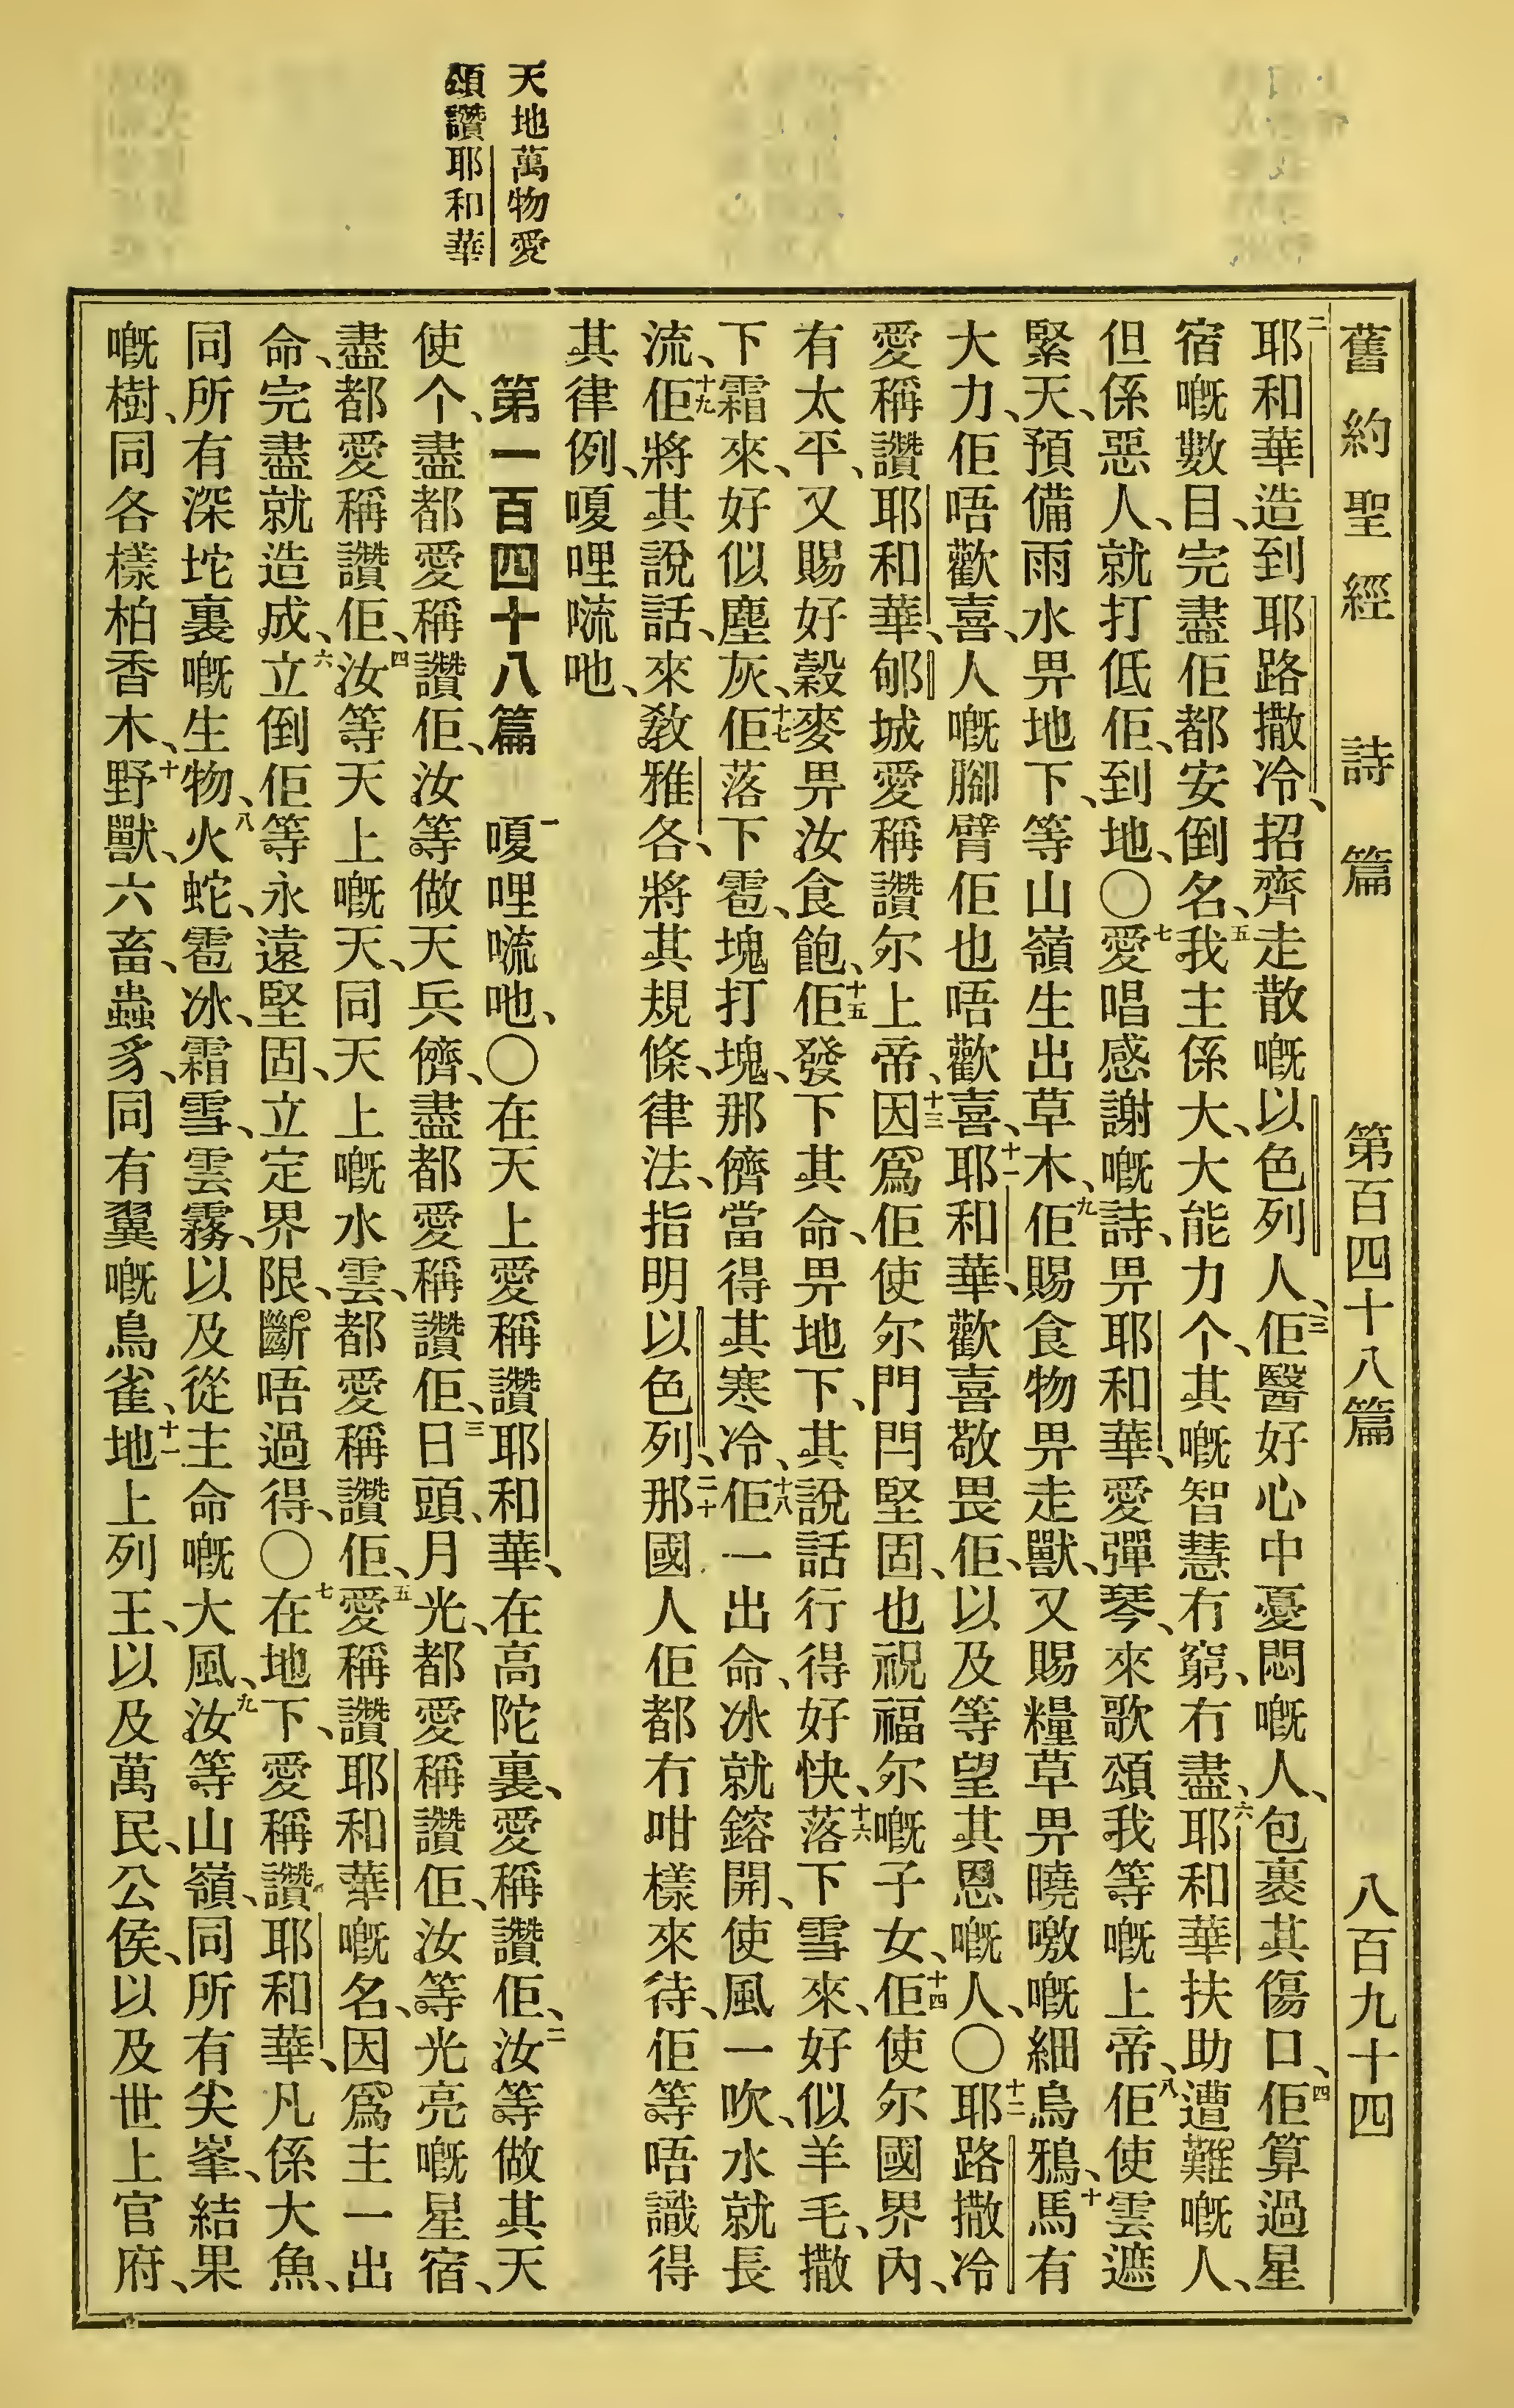 舊約聖經　詩篇　第百四十八篇　八百九十四
二耶和華造到耶路撒冷、招齊走散嘅以色列人、三佢醫好心中憂悶嘅人、包裹其傷口、四佢算過星
宿嘅數目、完盡佢都安倒名、五我主係大、大能力个、其嘅智慧冇窮、冇盡、六耶和華扶助遭難嘅人、
但係惡人、就打低佢、到地、〇七愛唱感謝嘅詩、畀耶和華、愛彈琴、來歌頌我等嘅上帝、八佢使雲遮
緊天、預備雨水畀地下、等山嶺生出草木、九佢賜食物畀走獸、又賜糧草畀曉噭嘅細烏鴉、十馬有
大力、佢唔歡喜、人嘅腳臂佢也唔歡喜、十一耶和華、歡喜敬畏佢、以及等望其恩嘅人、〇十二耶路撒冷
愛稱讚耶和華、郇城愛稱讚尔上帝、十三因爲佢使尔門閂堅固、也祝福尔嘅子女、十四佢使尔國界內、
有太平、又賜好穀麥畀汝食飽、十五佢發下其命、畀地下、其說話行得好快、十六落下雪來、好似羊毛、撒
下霜來、好似塵灰、十七佢落下雹、塊打塊、那儕當得其寒冷、十八佢一出命、冰就鎔開、使風一吹、水就長
流、十九佢將其說話、來教雅各、將其規條、律法、指明以色列、二十那國人佢都冇咁樣來待、佢等唔識得
其律例、嗄哩㗽吔、
天地萬物愛
頌讚耶和華
第一百四十八篇　一嗄哩㗽吔、〇在天上愛稱讚耶和華、在高陀裏、愛稱讚佢、二汝等做其天
使个、盡都愛稱讚佢、汝等做天兵儕、盡都愛稱讚佢、三日頭、月光、都愛稱讚佢、汝等光亮嘅星宿、
盡都愛稱讚佢、四汝等天上嘅天、同天上嘅水雲、都愛稱讚佢、五愛稱讚耶和華嘅名、因爲主一出
命、完盡就造成、六立倒佢等永遠堅固、立定界限、斷唔過得、〇七在地下、愛稱讚耶和華、凡係大魚、
同所有深坨裏嘅生物、八火蛇、雹冰、霜雪、雲霧、以及從主命嘅大風、九汝等山嶺、同所有尖峯、結果
嘅樹、同各樣柏香木、十野獸、六畜、蟲豸、同有翼嘅鳥雀、十一地上列王、以及萬民、公侯、以及世上官府、